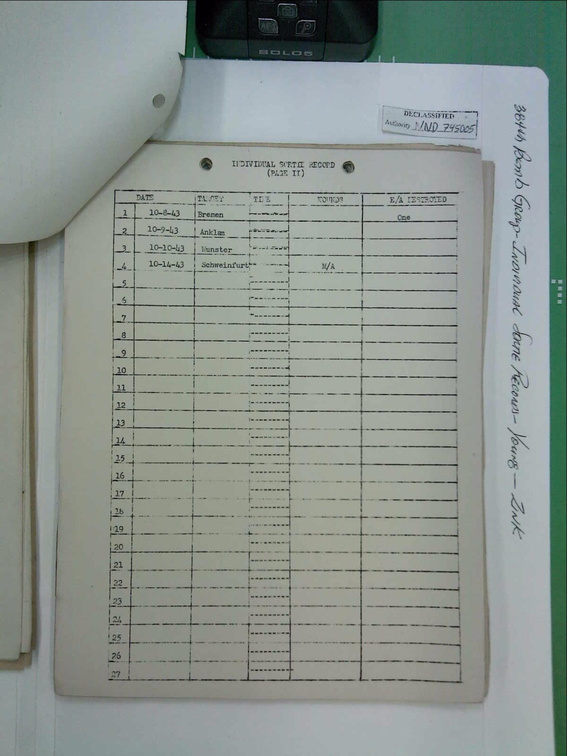 BOLOS
DECLASSIFIED
Authority NND 745005
384th Bomb Group - Individual Sortie Records - Young - Zink
INDIVIDUAL SORTIE RECORD
(PAGE II)
DATE TARGET TIME WOUNDS E/A DESTROYED
1 10-8-43 Bremen One
2 10-9-43 Anklam
3 10-10-43 Munster
4 10-14-43 Schweinfurt N/A
5
6
7
8
9
10
11
12
13
14
15
16
17
18
19
20
21
22
23
24
25
26
27